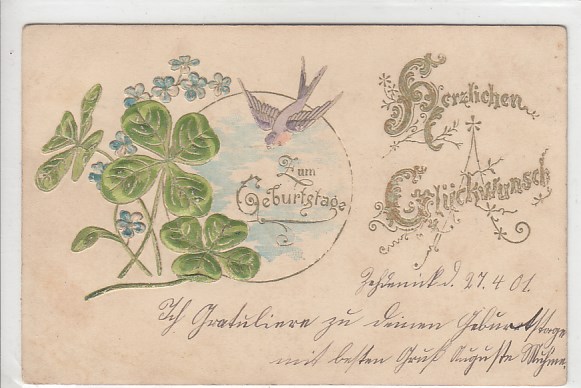 Herzlichen
Glückwunsch
Zum
Geburtstage
Zehdenick d. 27.4.01.
Ich Gratuliere zu deinen Geburtstage
mit besten Gruß Auguste Muhme